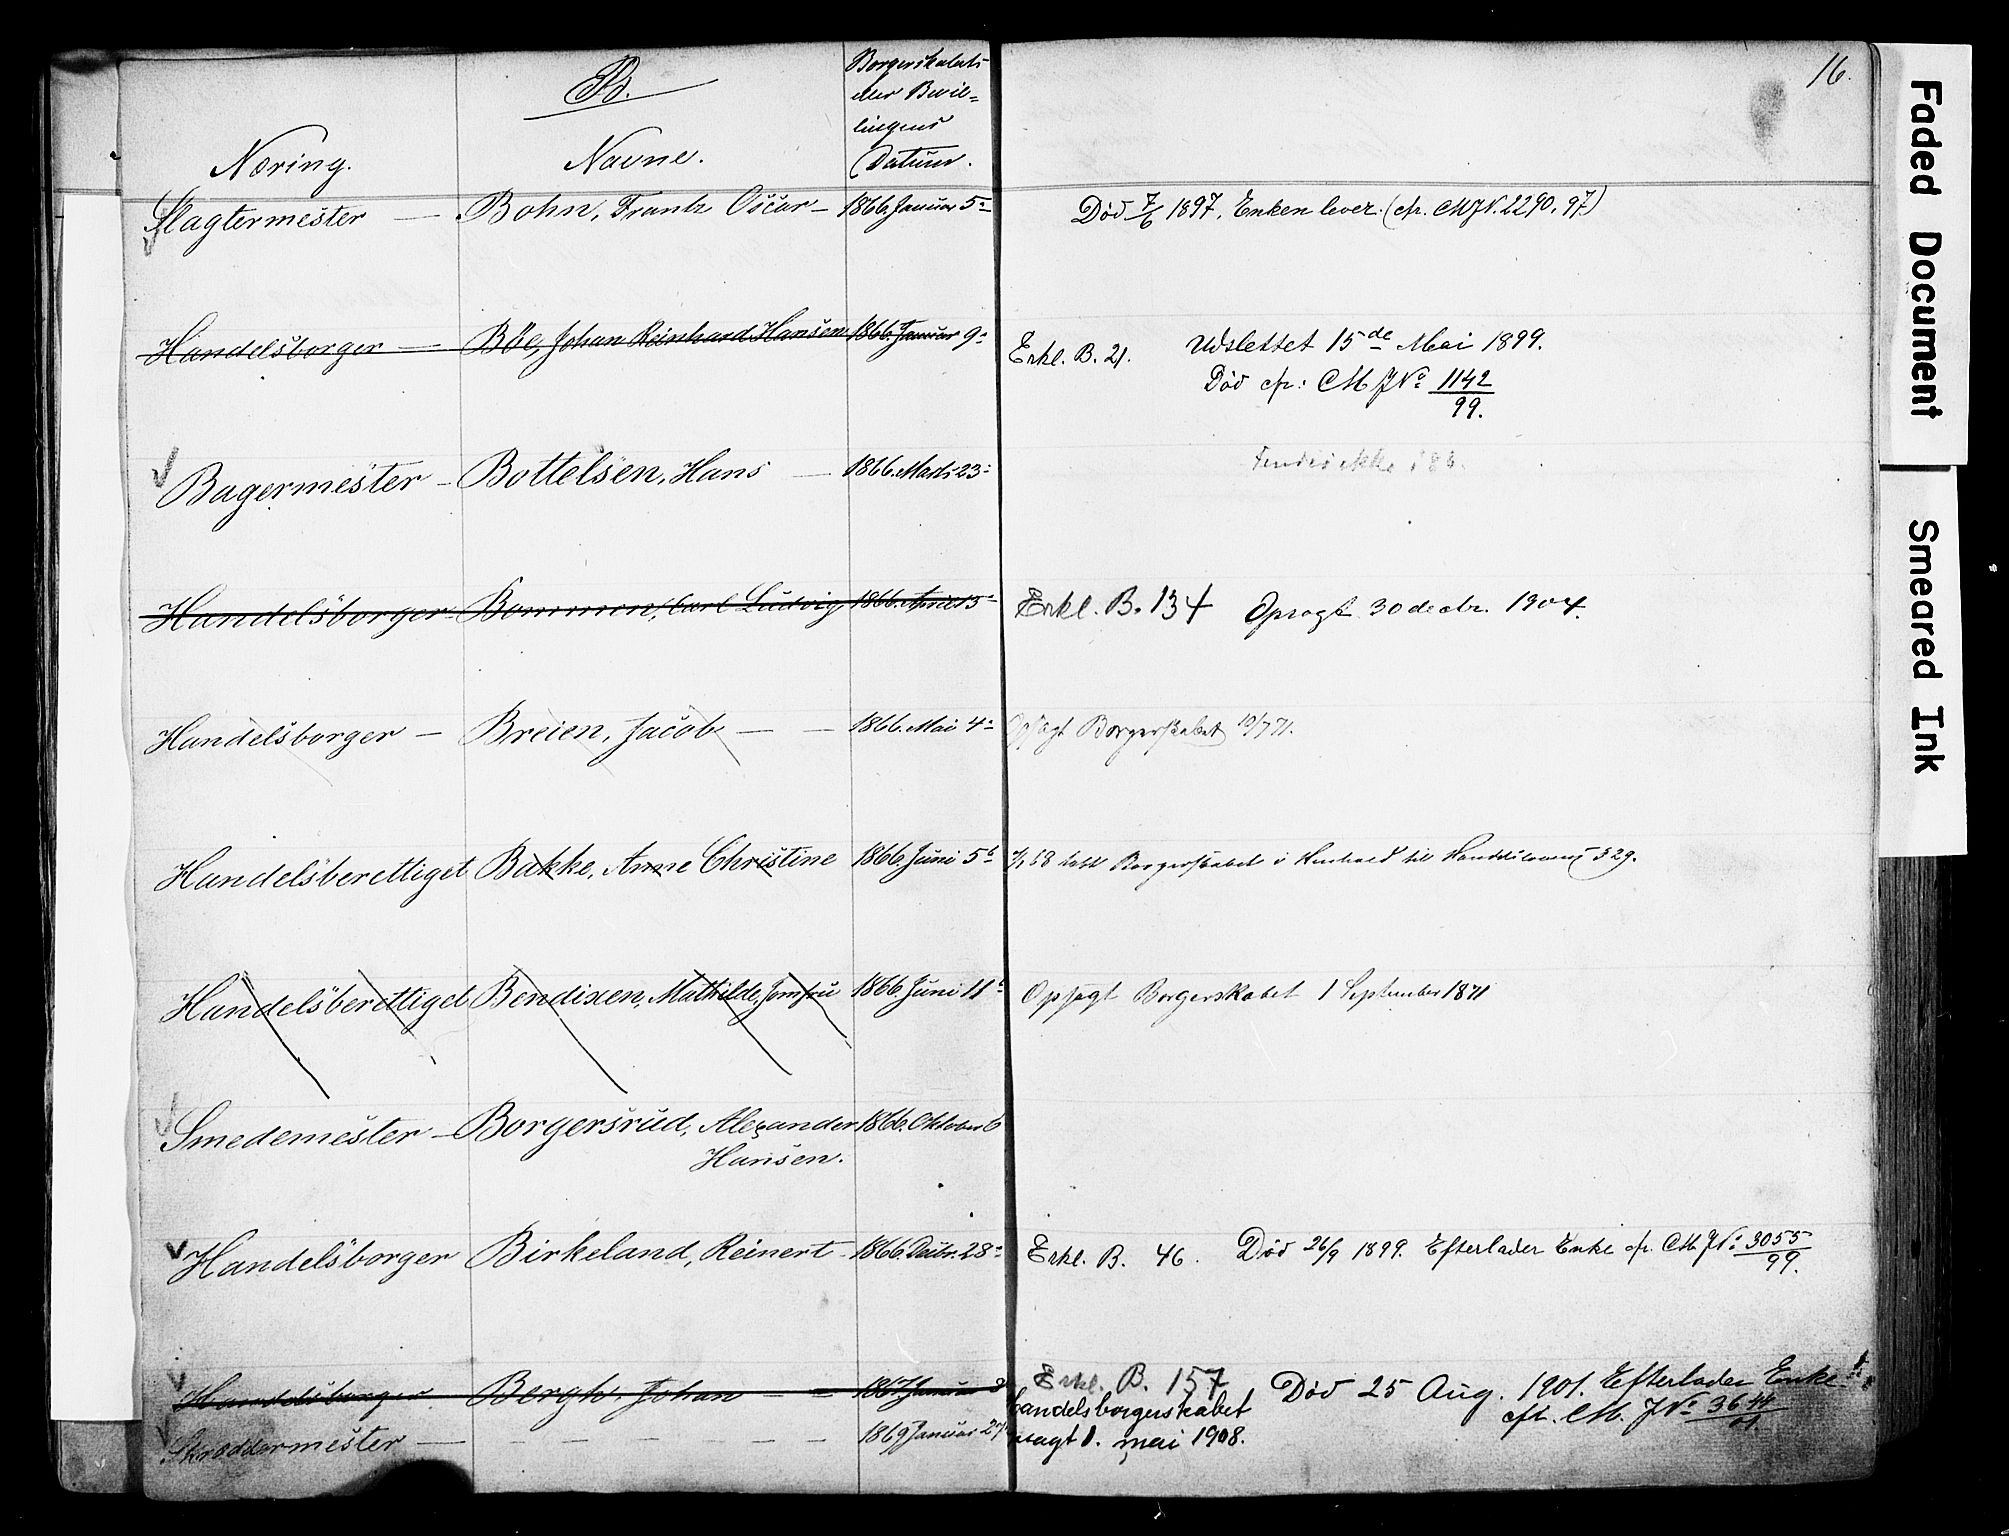 B.
Næring.
Navne.
Borgerskabets
eller Bevil=
lingens
Datum.
16.
Slagtermester — Bohn, Frantz Oscar — 1866. Januar 5. Død 7/6 1897. Enken lever. (cfr. CMJN. 2290. 97)
Handelsborger — Böe, Johan Reinhard Hansen 1866. Januar 9. Erkl. B. 21. Udslettet 15de Mai 1899.
Død cfr: CM JNo 1142
99.
Bagermester — Bottelsen, Hans — 1866. Marts 23. Findes ikke i 86.
Handelsborger Bommen, Carl Ludvig 1866. April 5 Erkl. B. 134 Opsagt 30 decbr. 1904.
Handelsborger — Breien, Jacob — — 1866. Mai 4. Opsagt Borgerskabet 19/7 71.
Handelsberettiget Bakke, Anne Christine 1866. Juni 5. Borgerskabet i Henhold til Handelsloven § 29.
Handelsberettiget Bendixen, Mathilde, Jomfru 1866. Juni 11. Opsagt Borgerskabet 1 September 1871
Smedemester — Borgersrud, Alexander 1866. Oktober 6
Hansen.
Handelsborger Birkeland, Reinert 1866. Decbr. 28. Erkl. B. 46. Død 26/9 1899. Efterlader Enke cfr. CM JNo 3055
99.
Handelsborger Bergh, Johan — — 1867 Januar Erkl. B. 157 Død 25 Aug. 1901. Efterlader Enke
cfr. CM. JNo 3644
01.
Handelsborgerskabet
Skræddermester — — — — — 1869 Januar opsagt 1. mai 1908.
Faded Document
Smeared Ink